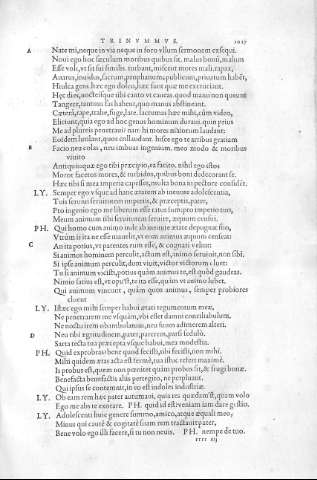 TRINVMMVS. 1027
A Nate mi, neque in via neque in foro vllum sermonem exsequi.
Noui ego hoc sæculum moribus quibus sit. malus bonū, malum
Esse vult, vt sit sui similis. turbant, miscent mores mali, rapax,
Auarus, inuidus, sacrum, prophanum, publicum, priuatum habēt,
Hiulca gens. hæc ego doleo, hæc sunt quæ me excruciant.
Hæc dies, noctesque tibi canto vt caueas. quod manu non queunt
Tangere, tantum fas habent, quo manus abstineant.
Cætera, rape, trahe, fuge, late. lacrumas hæc mihi, cùm video,
Eliciunt, quia ego ad hoc genus hominum duraui. quin prius
Me ad plureis penetraui? nam hi mores maiorum laudant:
Eosdem lutilant, quos collaudant. hisce ego te artibus gratiam
B Facio nec colas, neu imbuas ingenium. meo modo & moribus
viuito
Antiquis: quæ ego tibi præcipio, ea facito. nihil ego istos
Moror facetos mores, & turbidos, quibus boni dedecorant se.
Hæc tibi si mea imperia capesses, multa bona in pectore consident.
LY. Semper ego vsque ad hanc ætatem ab ineunte adolescentia,
Tuis seruiui seruitutem imperiis, & præceptis, pater,
Pro ingenio ego me liberum esse ratus sum, pro imperio tuo,
Meum animum tibi seruitutem seruire, æquum censui.
PH. Qui homo cum animo inde ab ineunte ætate depugnat suo,
Vtrùm ita ne esse mauelit, vt eum animus æquum censeat:
C An ita potius, vt parentes eum esse, & cognati velint:
Si animus hominem perculit, actum est, animo seruiuit, non sibi.
Si ipse animum perculit, dum viuit, victor victorum cluet.
Tu si animum vicisti, potius quàm animus te, est quòd gaudeas.
Nimio satius est, vt opu'st, te ita esse, quàm vt animo lubet.
Qui animum vincunt, quàm quos animus, semper probiores
cluent
LY. Istæc ego mihi semper habui ætati tegumentum meæ,
Ne penetrarem me vsquam, vbi esset damni conciliabulum.
Ne noctu irem obambulatum, neu suum adimerem alteri.
D Neu tibi ægritudinem, pater, parerem, parsi sedulò.
Sarta tecta tua præcepta vsque habui, mea modestia.
PH. Quid exprobras? bene quod fecisti, tibi fecisti, non mihi.
Mihi quidem ætas acta est fermè, tua isthuc refert maximè.
Is probus est, quem non pœnitet quàm probus sit, & frugi bonæ.
Benefacta benefactis aliis pertegito, ne perpluant.
Qui ipsus se contemnit, in eo est indoles industriæ.
LY. Ob eam rem hæc pater autumaui, quia res quædam'st, quam volo
Ego me abs te exorare. PH. quid id est? veniam iam dare gestio.
LY. Adolescenti huic genere summo, amico, atque æquali meo,
Minus qui cautè & cogitatè suam rem tractauit pater,
Bene volo ego illi facere, si tu non neuis. PH. nempe de tuo.
rrrr iij